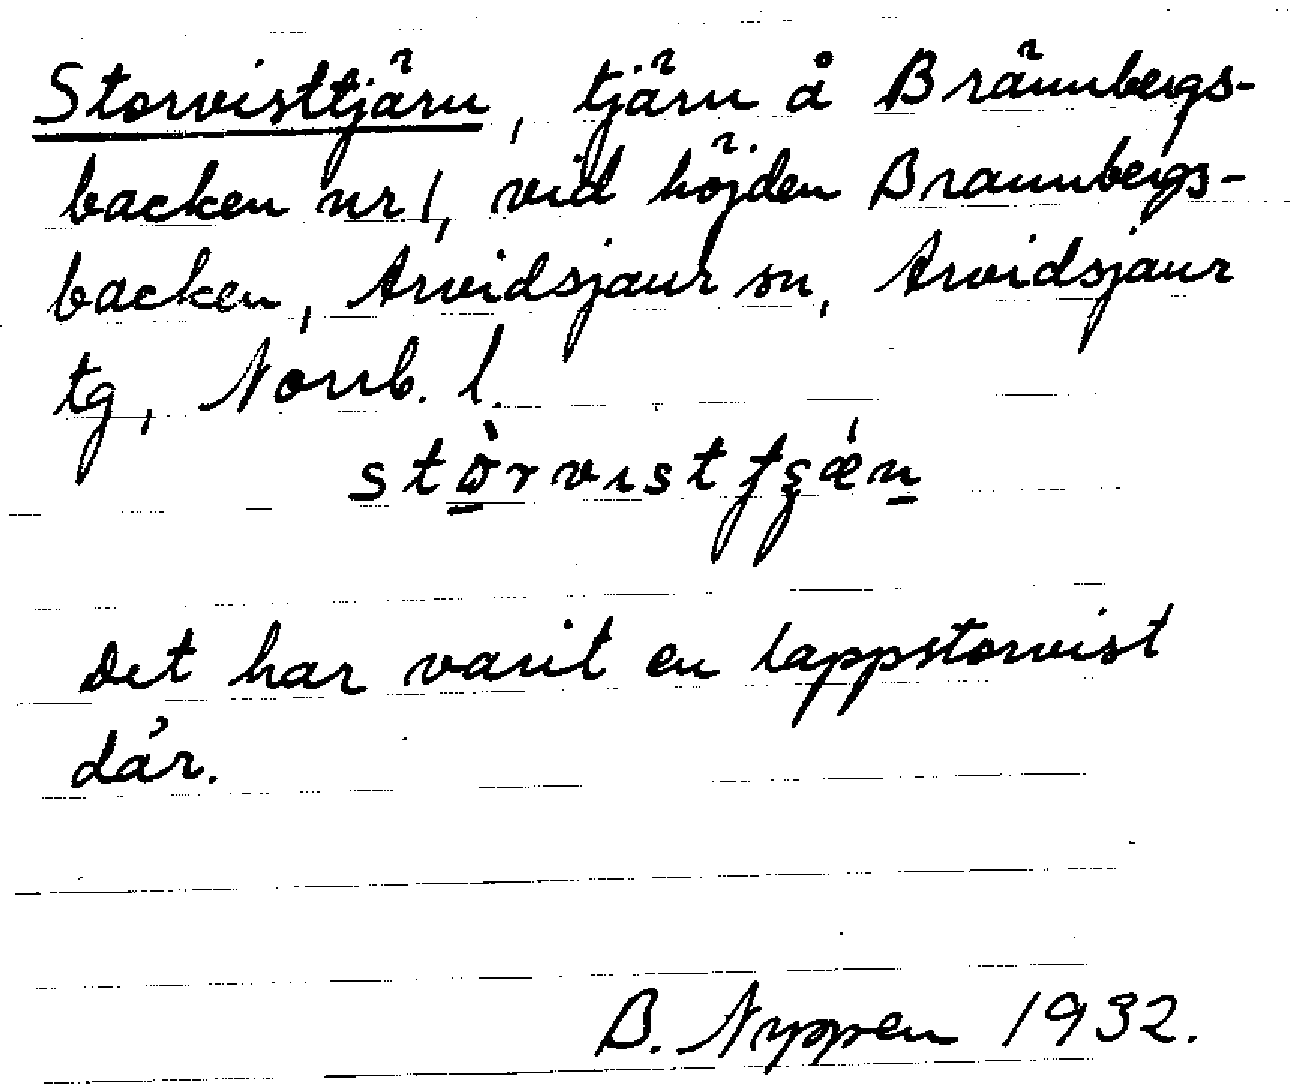 Storvisttjärn, tjärn å Brännbergs-
backen nr 1, vid höjden Brännbergs-
backen, Arvidsjaur sn, Arvidsjaur
tg, Norrb. l.
Det har varit en lappstorvist
där.
B. Nyppen 1932.